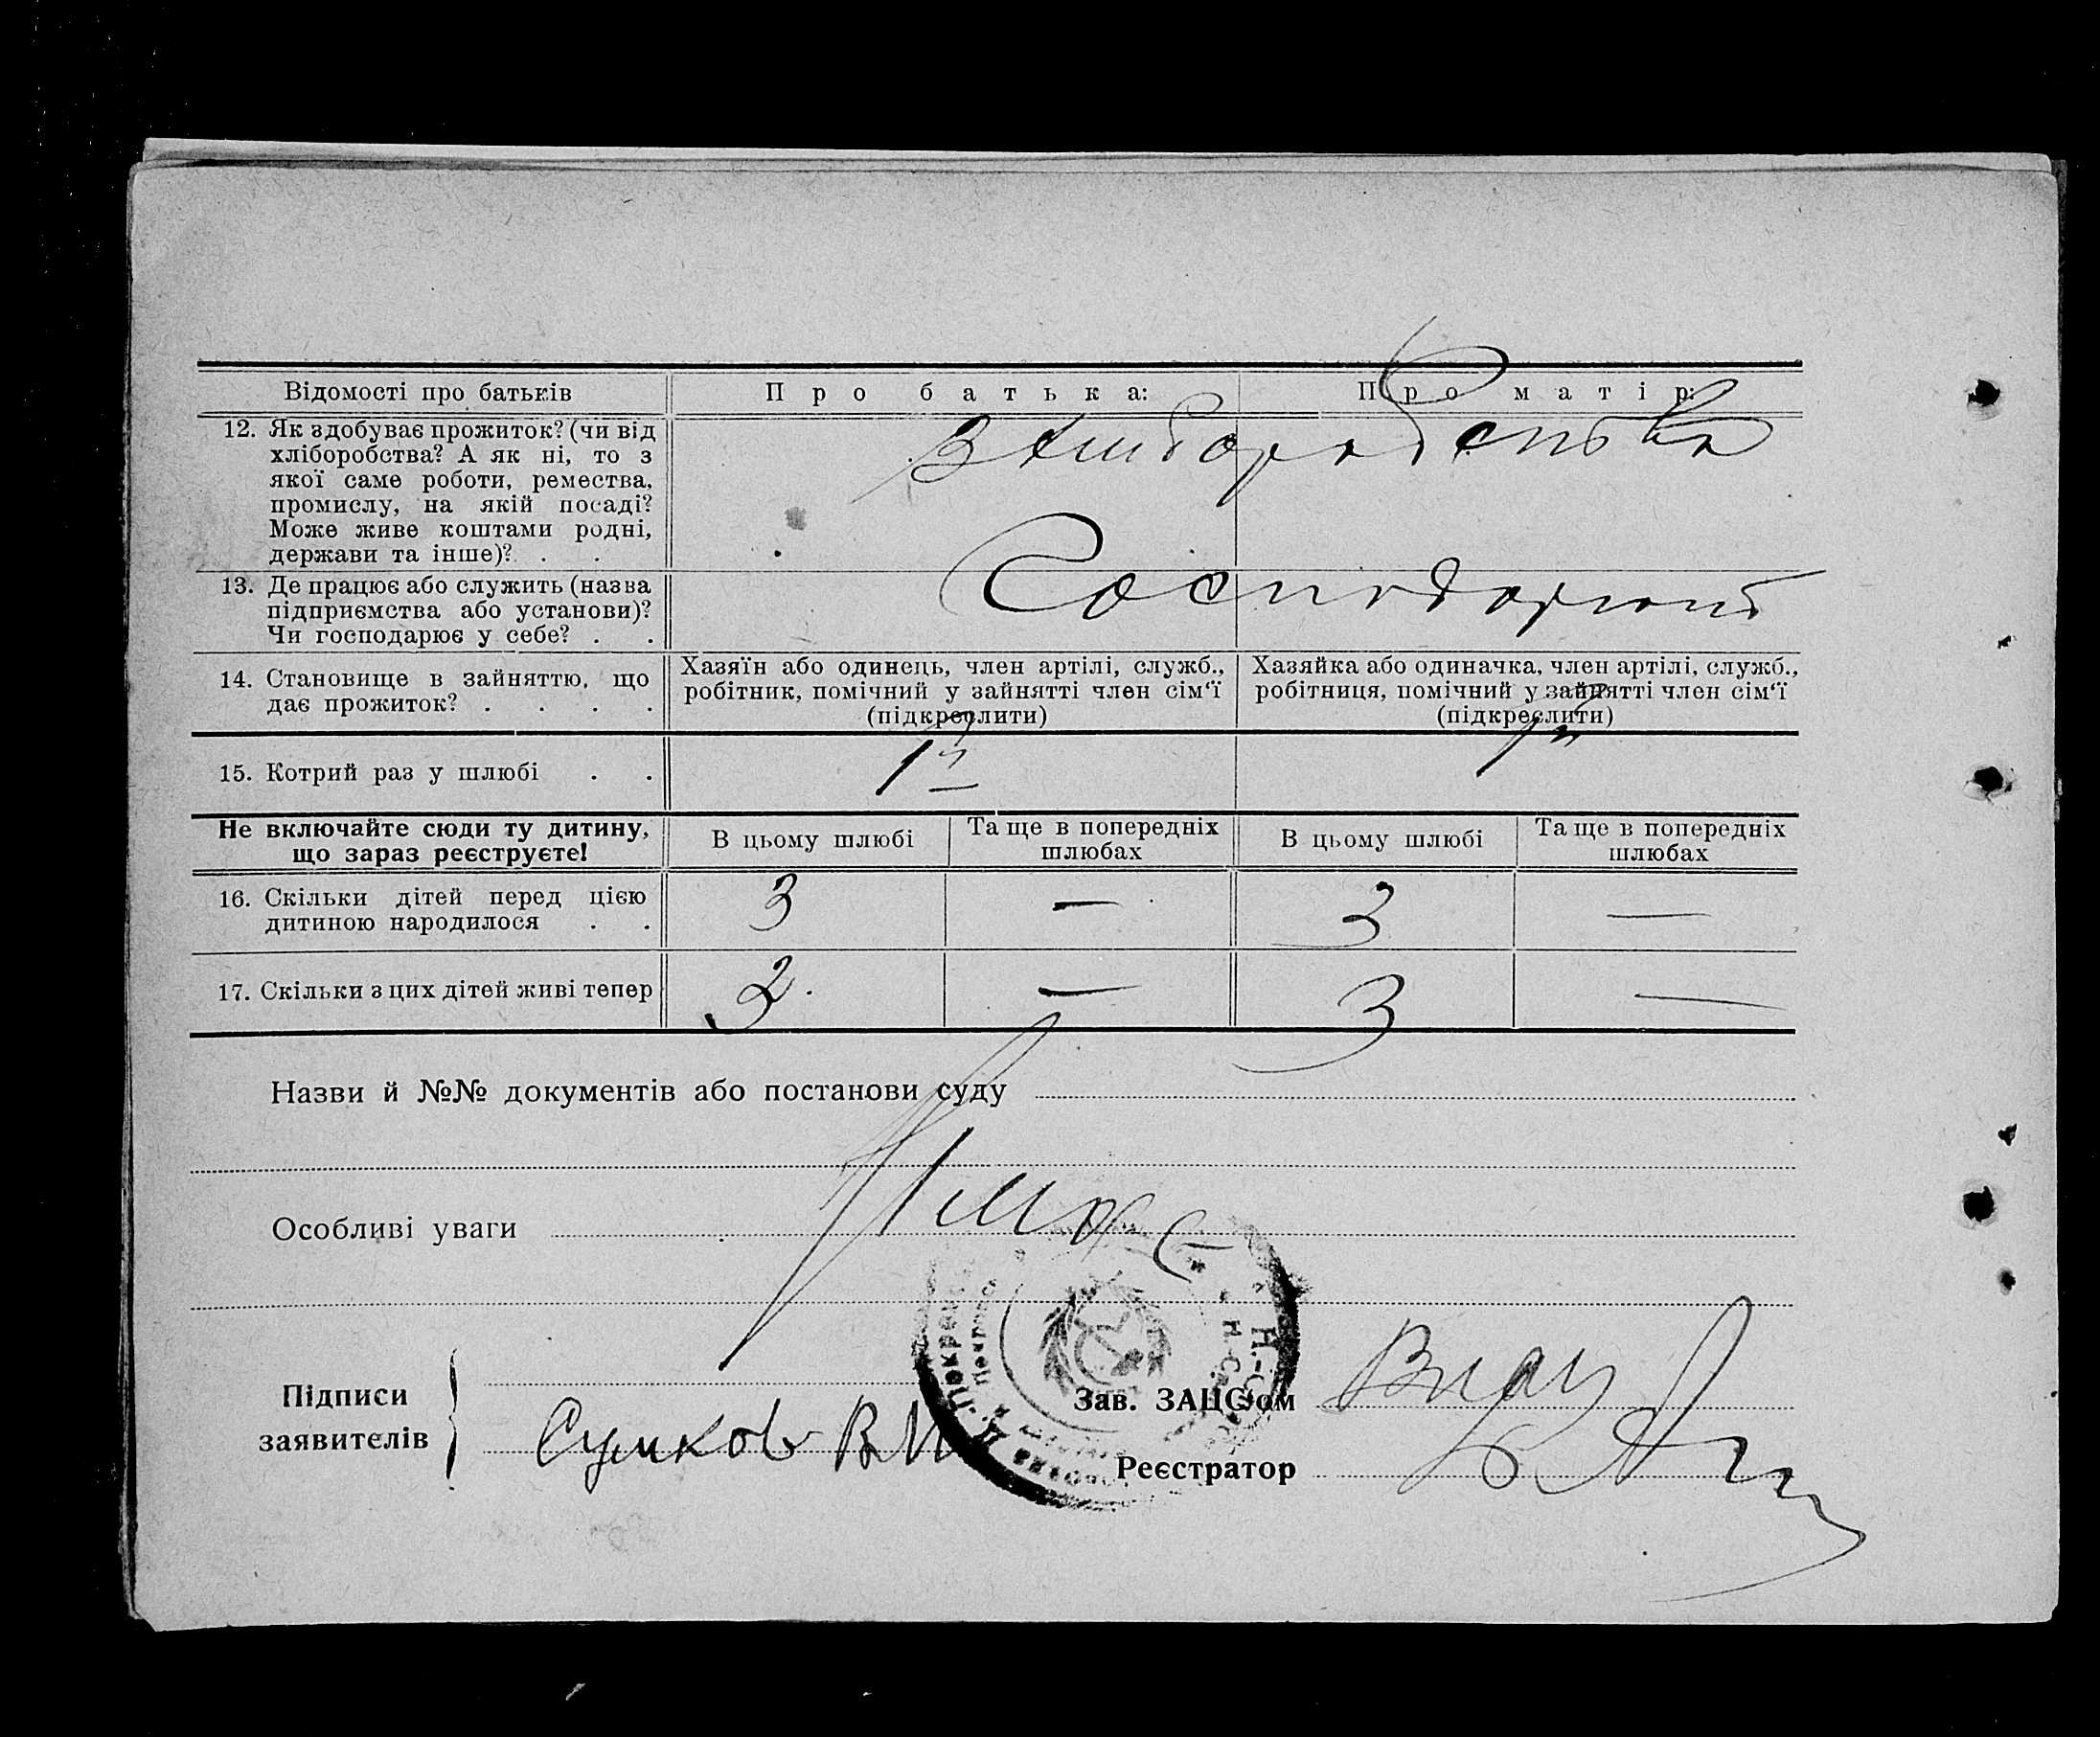 Відомості про батьків
Про батька:
Про матір:
12. Як здобуває прожиток? (чи від
хліборобства? А як ні, то з
якої саме роботи, ремества,
промислу, на якій посаді?
Може живе коштами родні,
держави та інше)? . .
З хліборобства
13. Де працює або служить (назва
підприємства або установи)?
Чи господарює у себе? . .
14. Становище в зайняттю, що
дає прожиток? . . . .
Хазяїн або одинець, член артілі, служб.,
робітник, помічний у зайнятті член сім'ї
(підкреслити)
Хазяйка або одиначка, член артілі, служб.,
робітниця, помічний у зайнятті член сім'ї
(підкреслити)
15. Котрий раз у шлюбі . .
1й
1й
Не включайте сюди ту дитину,
що зараз реєструєте!
В цьому шлюбі
Та ще в попередніх
шлюбах
В цьому шлюбі
Та ще в попередніх
шлюбах
16. Скільки дітей перед цією
дитиною народилося . .
3
—
3
—
17. Скільки з цих дітей живі тепер
3
—
3
—
Назви й №№ документів або постанови суду
Особливі уваги
Підписи
заявителів
Зав. ЗАЦС'ом
Реєстратор